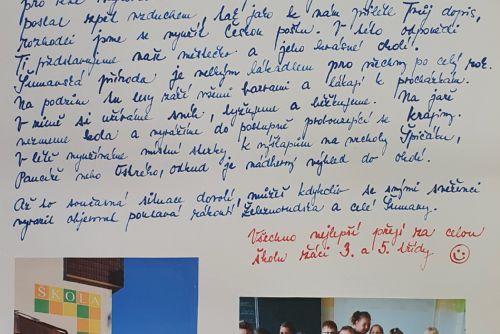 poslal zpět vzduchem, tak jako k nám přiletěl Tvůj dopis,
rozhodli jsme se využít Českou poštu. V této odpovědi
Ti představujeme naše městečko a jeho krásné okolí.
Šumavská příroda je velkým lákadlem pro všechny po celý rok.
Na podzim tu lesy září všemi barvami a lákají k procházkám.
V zimě si užíváme sníh, lyžujeme a běžkujeme. Na jaře
vezmeme kola a vyrazíme do postupně probouzející se krajiny.
V létě využíváme místní stezky k výšlapům na vrcholy Špičáku,
Pancíře nebo Ostrého, odkud je nádherný výhled do okolí.
Až to současná situace dovolí, můžeš kdykoliv se svými svěřenci
vyrazit objevovat poutavá zákoutí Železnorudska a celé Šumavy.
Všechno nejlepší přejí za celou
školu žáci 3. a 5. třídy
ŠKOLA